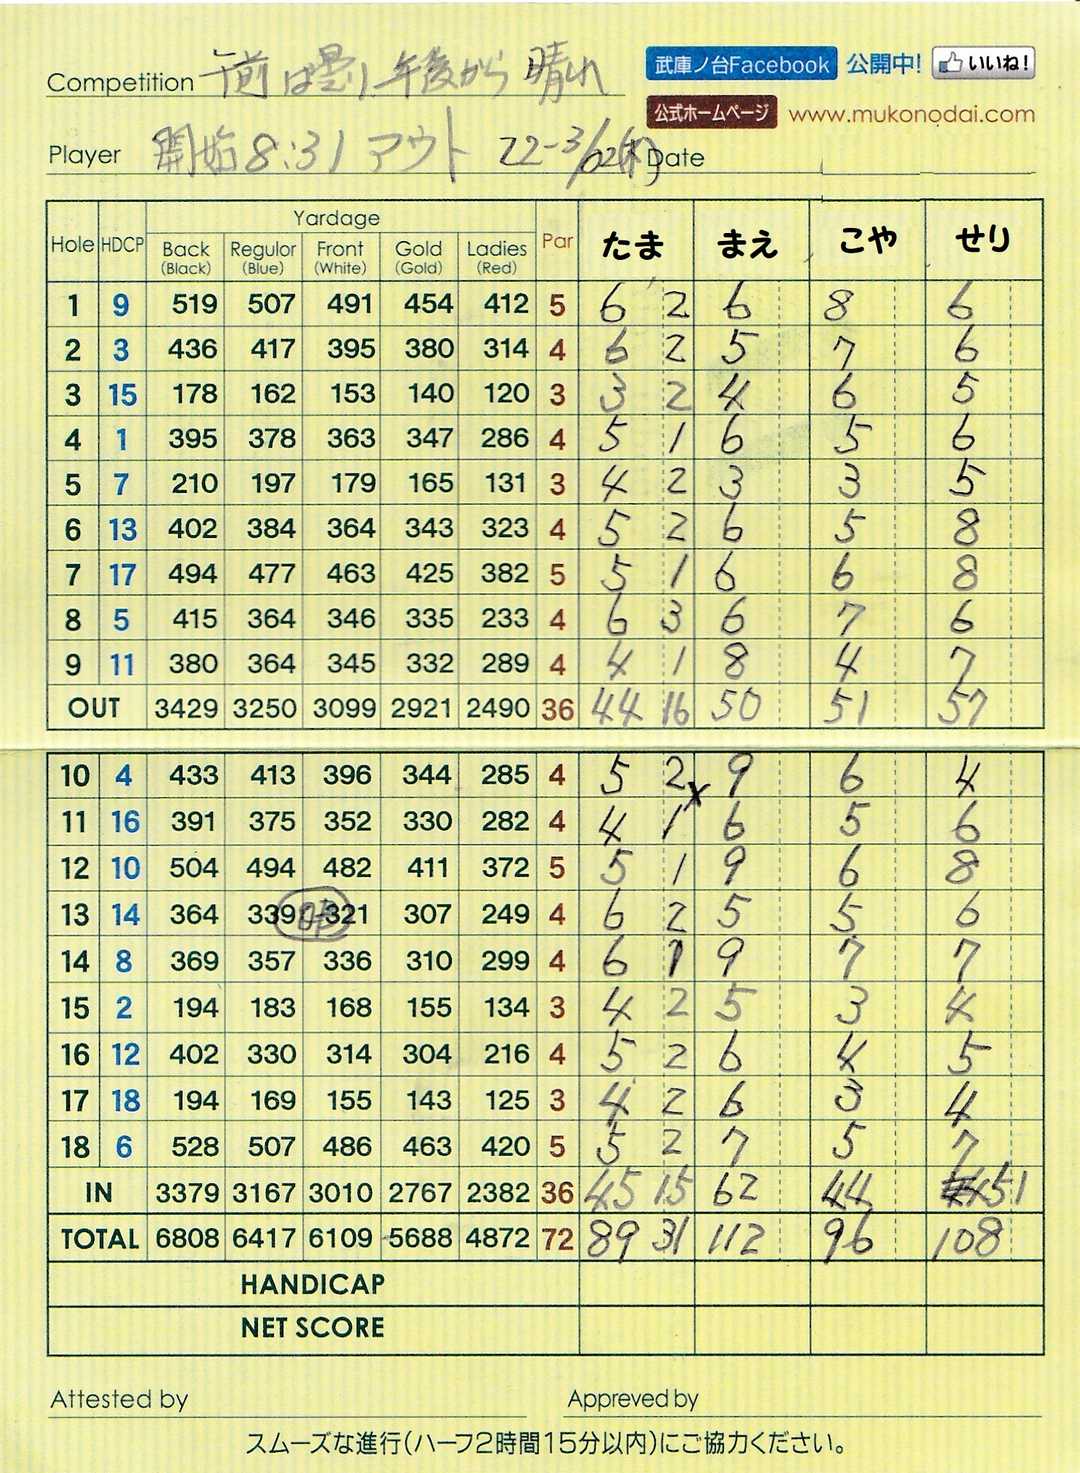 Competition 午前は曇り、午後から晴れ 武庫ノ台Facebook 公開中! いいね!
公式ホームページ www.mukonodai.com
Player 開始8:31 アウト 22-3/02(水) Date
Hole HDCP Yardage Par たま まえ こや せり
Back (Black) Regulor (Blue) Front (White) Gold (Gold) Ladies (Red)
1 9 519 507 491 454 412 5 6 2 6 8 6
2 3 436 417 395 380 314 4 6 2 5 7 6
3 15 178 162 153 140 120 3 3 2 4 6 5
4 1 395 378 363 347 286 4 5 1 6 5 6
5 7 210 197 179 165 131 3 4 2 3 3 5
6 13 402 384 364 343 323 4 5 2 6 5 8
7 17 494 477 463 425 382 5 5 1 6 6 8
8 5 415 364 346 335 233 4 6 3 6 7 6
9 11 380 364 345 332 289 4 4 1 8 4 7
OUT 3429 3250 3099 2921 2490 36 44 16 50 51 57
10 4 433 413 396 344 285 4 5 2 x 9 6 4
11 16 391 375 352 330 282 4 4 1 6 5 6
12 10 504 494 482 411 372 5 5 1 9 6 8
13 14 364 339 321 307 249 4 6 2 5 5 6
14 8 369 357 336 310 299 4 6 1 9 7 7
15 2 194 183 168 155 134 3 4 2 5 3 4
16 12 402 330 314 304 216 4 5 2 6 4 5
17 18 194 169 155 143 125 3 4 2 6 3 4
18 6 528 507 486 463 420 5 5 2 7 5 7
IN 3379 3167 3010 2767 2382 36 45 15 62 44 51
TOTAL 6808 6417 6109 5688 4872 72 89 31 112 96 108
HANDICAP
NET SCORE
Attested by Appreved by
スムーズな進行(ハーフ2時間15分以内)にご協力ください。